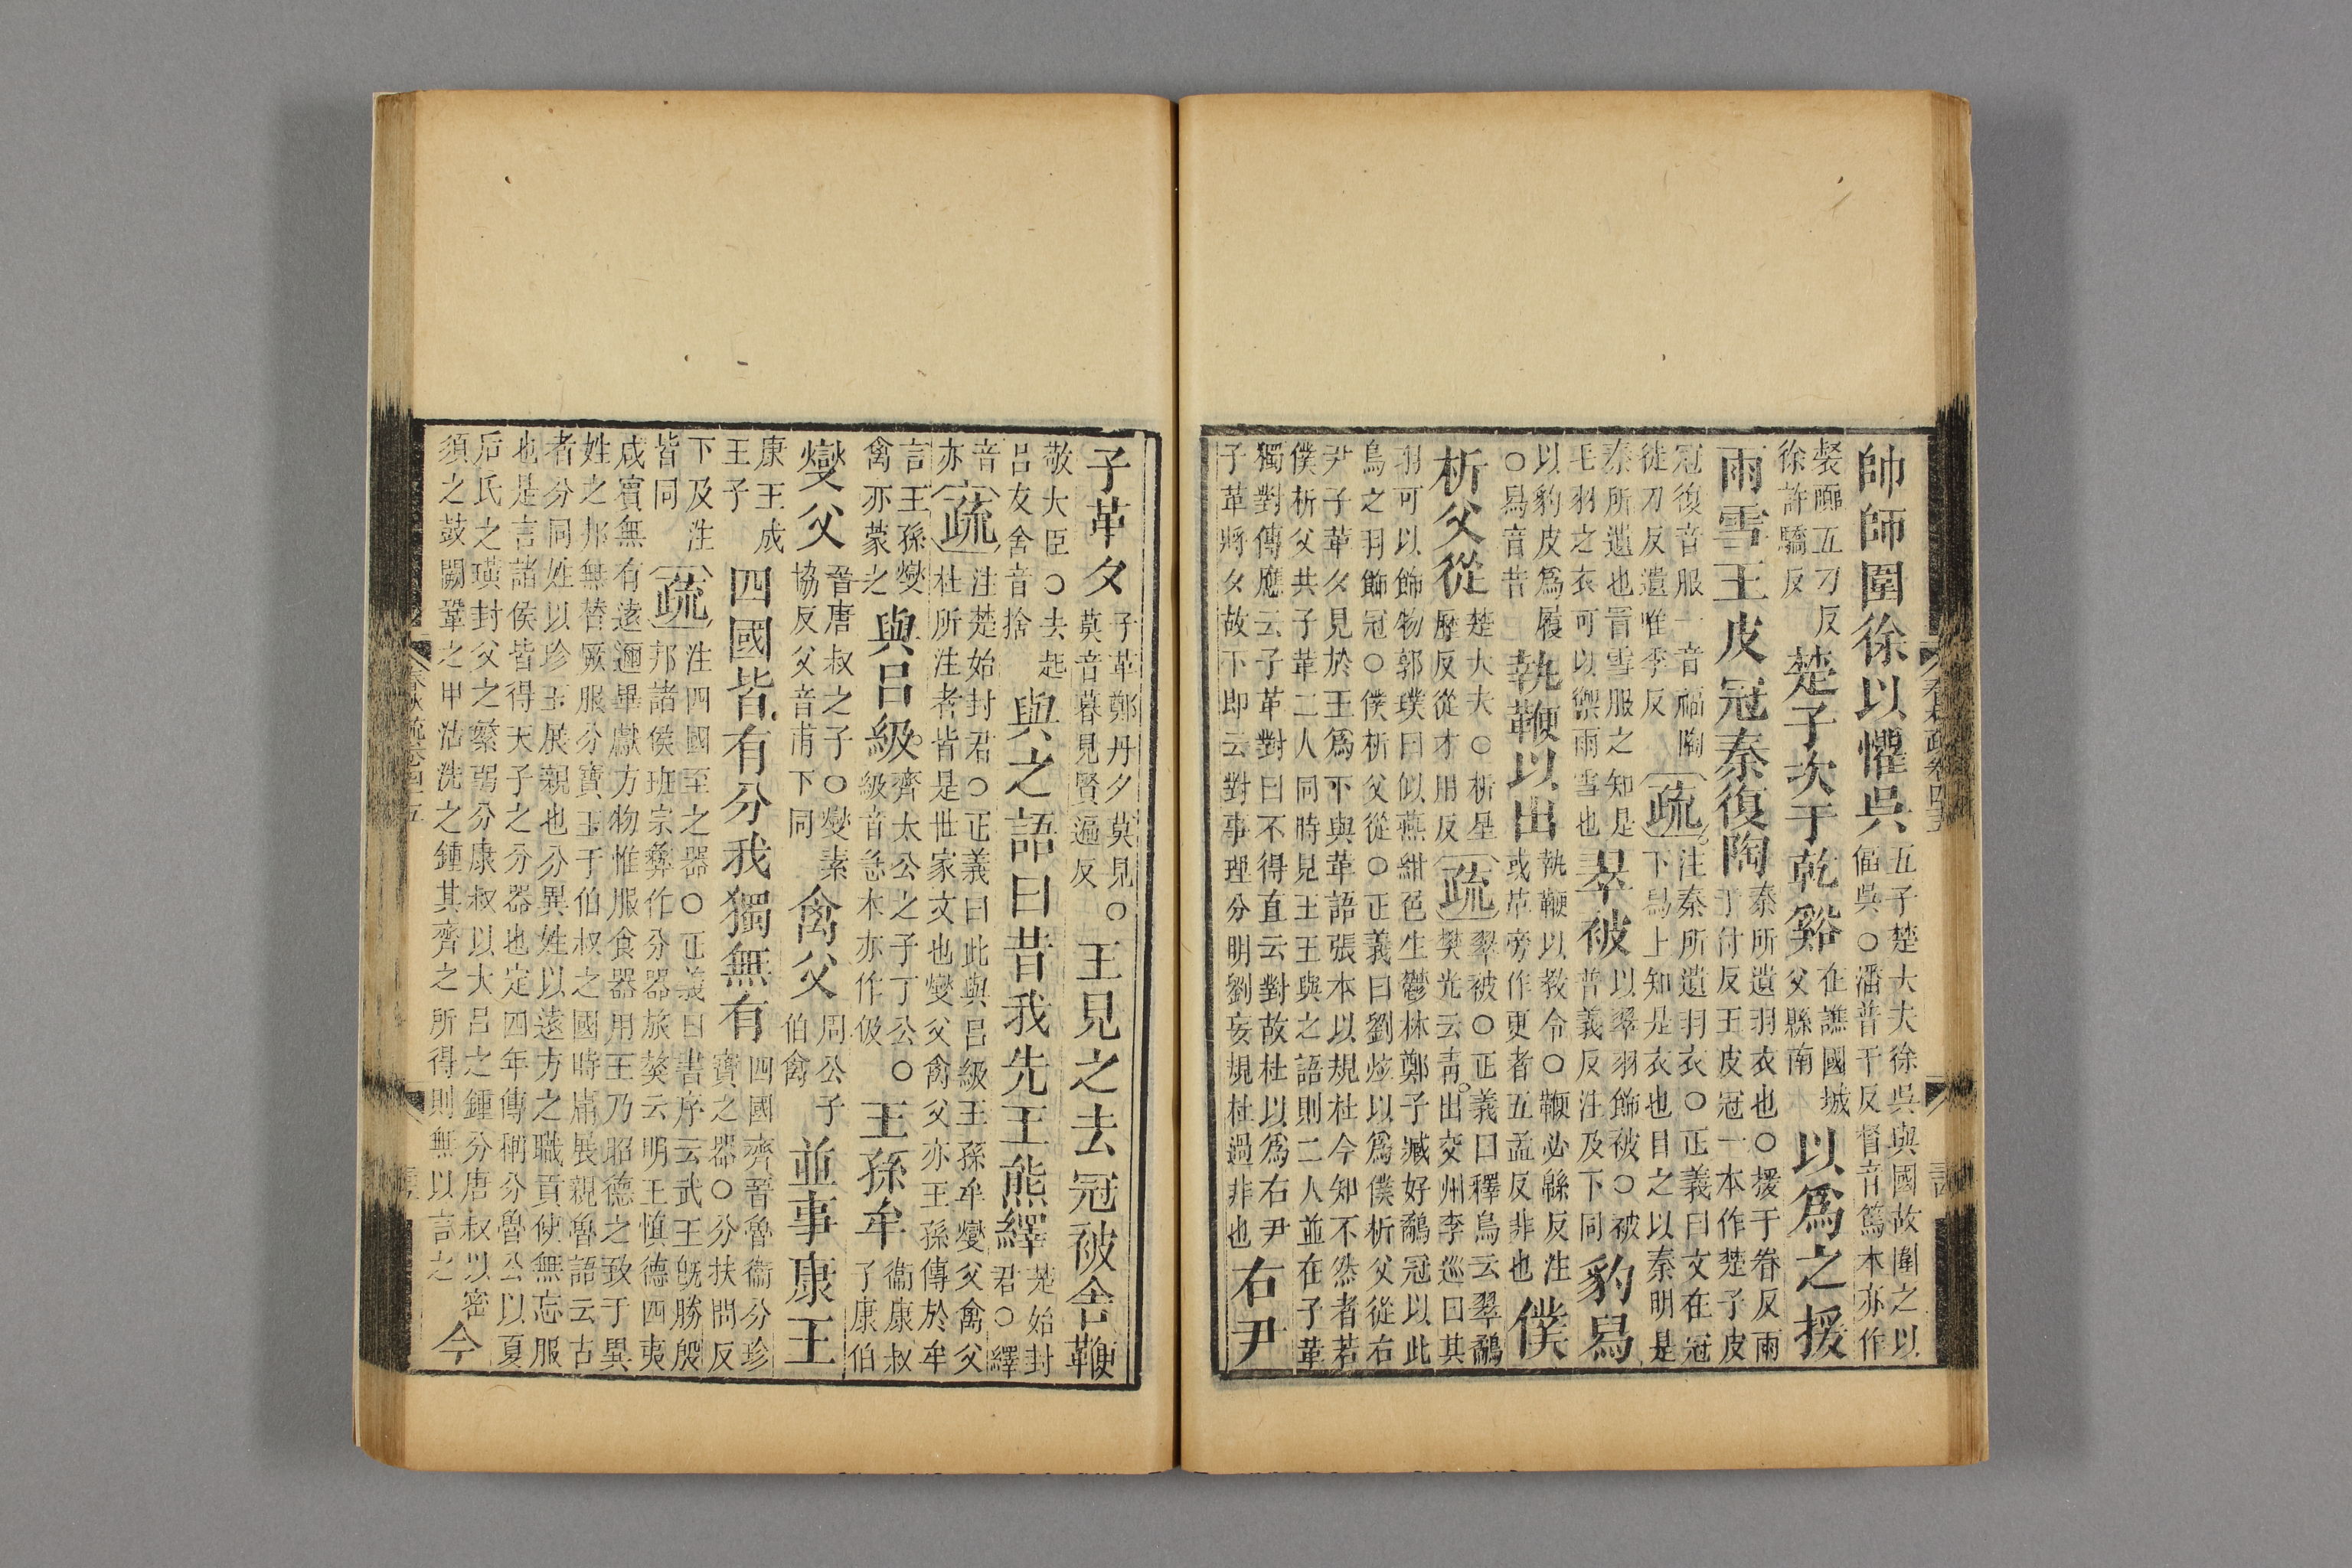 帥師圍徐以懼吳五子楚大夫徐吳與國故圍之以偪吳○潘普干反督音篤本亦作
裻囂五刀反徐許驕反楚子次于乾谿在譙國城父縣南以爲之援
雨雪王皮冠秦復陶秦所遺羽衣也○援于眷反雨于付反王皮冠一本作楚子皮
冠復音服一音福陶徒刀反遺唯季反疏注秦所遺羽衣○正義曰文在冠下舄上知是衣也目之以秦明是
秦所遺也冒雪服之知是毛羽之衣可以禦雨雪也翠被以翠羽飾被○被普義反注及下同豹舄
以豹皮爲履○舄音昔執鞭以出執鞭以敎令○鞭必緜反注或革旁作更者五孟反非也僕
析父從楚大夫○析星歷反從才用反疏翠被○正義曰釋鳥云翠鷸樊光云靑出交州李巡曰其
羽可以飾物郭璞曰似燕紺色生鬱林鄭子臧好鷸冠以此鳥之羽飾冠○僕析父從○正義曰劉炫以爲僕析父從右
尹子革夕見於王爲下與革語張本以規杜今知不然者若僕析父共子革二人同時見王王與之語則二人並在子革
獨對傳應云子革對曰不得直云對故杜以爲右尹子革將夕故下即云對事理分明劉妄規杜過非也右尹
子革夕子革鄭丹夕莫見○莫音暮見賢遍反王見之去冠被舍鞭
敬大臣○去起呂友舍音捨與之語曰昔我先王熊繹楚始封君○繹
音亦疏注楚始封君○正義曰此與呂級王孫牟燮父禽父杜所注者皆是世家文也燮父禽父亦王孫傳於牟
言王孫燮禽亦蒙之與呂級齊太公之子丁公○級音急本亦作伋王孫牟衞康叔子康伯
燮父晉唐叔之子○燮素協反父音甫下同禽父周公子伯禽並事康王
康王成王子四國皆有分我獨無有四國齊晉魯衞分珍寶之器○分扶問反
下及注皆同疏注四國至之器○正義曰書序云武王旣勝殷邦諸侯班宗彝作分器旅獒云明王愼德四夷
咸賓無有遠邇畢獻方物惟服食器用王乃昭德之致于異姓之邦無替厥服分寶玉于伯叔之國時庸展親魯語云古
者分同姓以珍玉展親也分異姓以遠方之職貢使無忘服也是言諸侯皆得天子之分器也定四年傳稱分魯公以夏
后氏之璜封父之繁弱分康叔以大呂之鍾分唐叔以密須之鼓闕鞏之甲沽洗之鍾其齊之所得則無以言之今